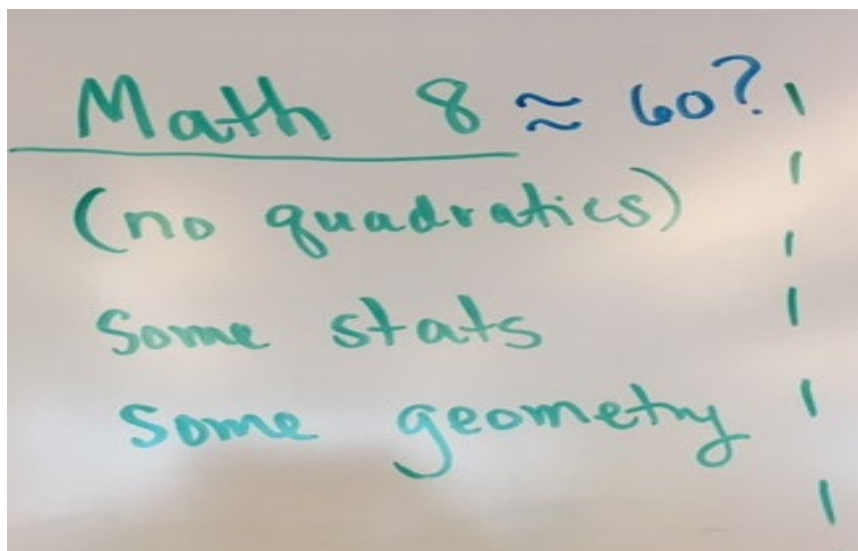 Math 8 ≈ 60?
(no quadratics)
some stats
some geometry